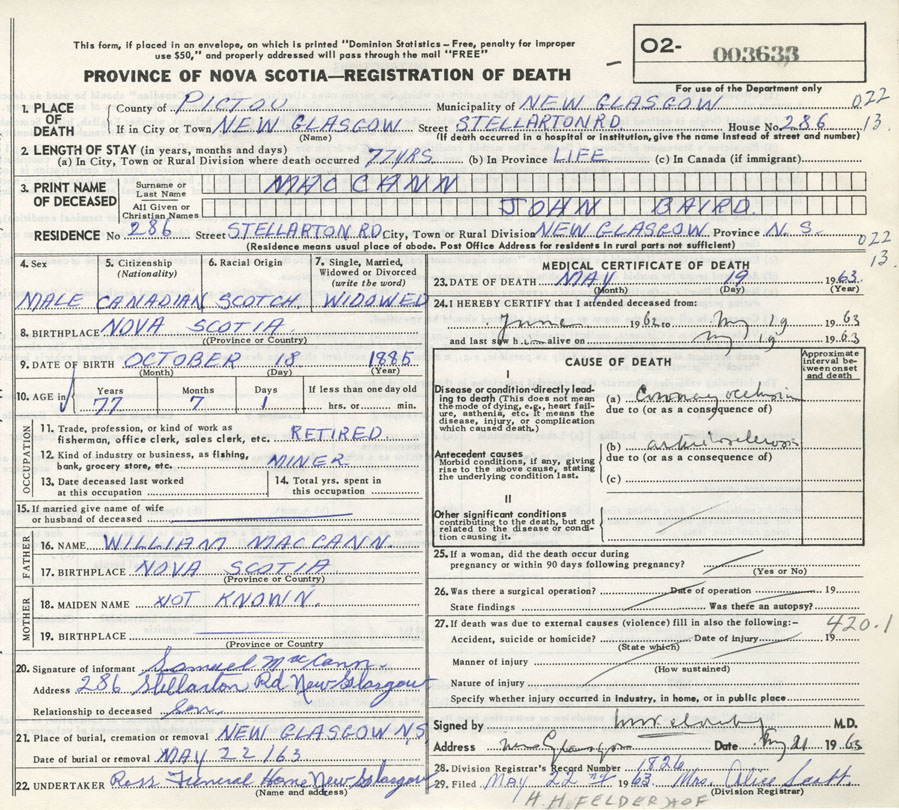 This form, if placed in an envelope, on which is printed "Dominion Statistics – Free, penalty for improper
use $50," and properly addressed will pass through the mail "FREE"
O2- 003633
For use of the Department only
PROVINCE OF NOVA SCOTIA—REGISTRATION OF DEATH
1. PLACE OF DEATH County of PICTOU Municipality of NEW GLASGOW 022
If in City or Town NEW GLASGOW Street STELLARTON RD House No. 286 13.
(Name) (If death occurred in a hospital or institution, give the name instead of street and number)
2. LENGTH OF STAY (in years, months and days)
(a) In City, Town or Rural Division where death occurred 77 YRS (b) In Province LIFE (c) In Canada (if immigrant)
3. PRINT NAME OF DECEASED Surname or Last Name MACCANN
All Given or Christian Names JOHN BAIRD
RESIDENCE No 286 Street STELLARTON RD City, Town or Rural Division NEW GLASGOW Province N. S. 022
(Residence means usual place of abode. Post Office Address for residents in rural parts not sufficient) 13.
4. Sex 5. Citizenship (Nationality) 6. Racial Origin 7. Single, Married, Widowed or Divorced (write the word)
MALE CANADIAN SCOTCH WIDOWED
8. BIRTHPLACE NOVA SCOTIA
(Province or Country)
9. DATE OF BIRTH OCTOBER 18 1885
(Month) (Day) (Year)
10. AGE in Years Months Days If less than one day old
77 7 1 hrs. or min.
OCCUPATION
11. Trade, profession, or kind of work as
fisherman, office clerk, sales clerk, etc. RETIRED
12. Kind of industry or business, as fishing,
bank, grocery store, etc. MINER
13. Date deceased last worked
at this occupation
14. Total yrs. spent in
this occupation
15. If married give name of wife
or husband of deceased
FATHER
16. NAME WILLIAM MACCANN.
17. BIRTHPLACE NOVA SCOTIA
(Province or Country)
MOTHER
18. MAIDEN NAME NOT KNOWN.
19. BIRTHPLACE
(Province or Country)
20. Signature of informant Samuel MacCann.
Address 286 Stellarton Rd New Glasgow
Relationship to deceased Son.
21. Place of burial, cremation or removal NEW GLASGOW N.S
Date of burial or removal MAY 22/63
22. UNDERTAKER Ross Funeral Home New Glasgow
(Name and address)
MEDICAL CERTIFICATE OF DEATH
23. DATE OF DEATH MAY 19 1963.
(Month) (Day) (Year)
24. I HEREBY CERTIFY that I attended deceased from:
June 1962 to My 19 1963
and last saw him alive on My 19 1963
CAUSE OF DEATH
Approximate interval between onset and death
I
Disease or condition directly leading
to death (This does not mean
the mode of dying, e.g., heart failure,
asthenia, etc. It means the
disease, injury, or complication
which caused death.)
(a) Coronary occlusion
due to (or as a consequence of)
(b) arteriosclerosis
due to (or as a consequence of)
(c)
Antecedent causes
Morbid conditions, if any, giving
rise to the above cause, stating
the underlying condition last.
II
Other significant conditions
contributing to the death, but not
related to the disease or condition
causing it.
25. If a woman, did the death occur during
pregnancy or within 90 days following pregnancy?
(Yes or No)
26. Was there a surgical operation? Date of operation 19
State findings Was there an autopsy?
27. If death was due to external causes (violence) fill in also the following:– 420.1
Accident, suicide or homicide? Date of injury 19
(State which)
Manner of injury
(How sustained)
Nature of injury
Specify whether injury occurred in industry, in home, or in public place
Signed by M.D.
Address New Glasgow Date My 21 1963
28. Division Registrar's Record Number 1826
29. Filed MAY 22nd 1963. Mrs. Alice Scott.
(Division Registrar)
H.H. FELDERHOF